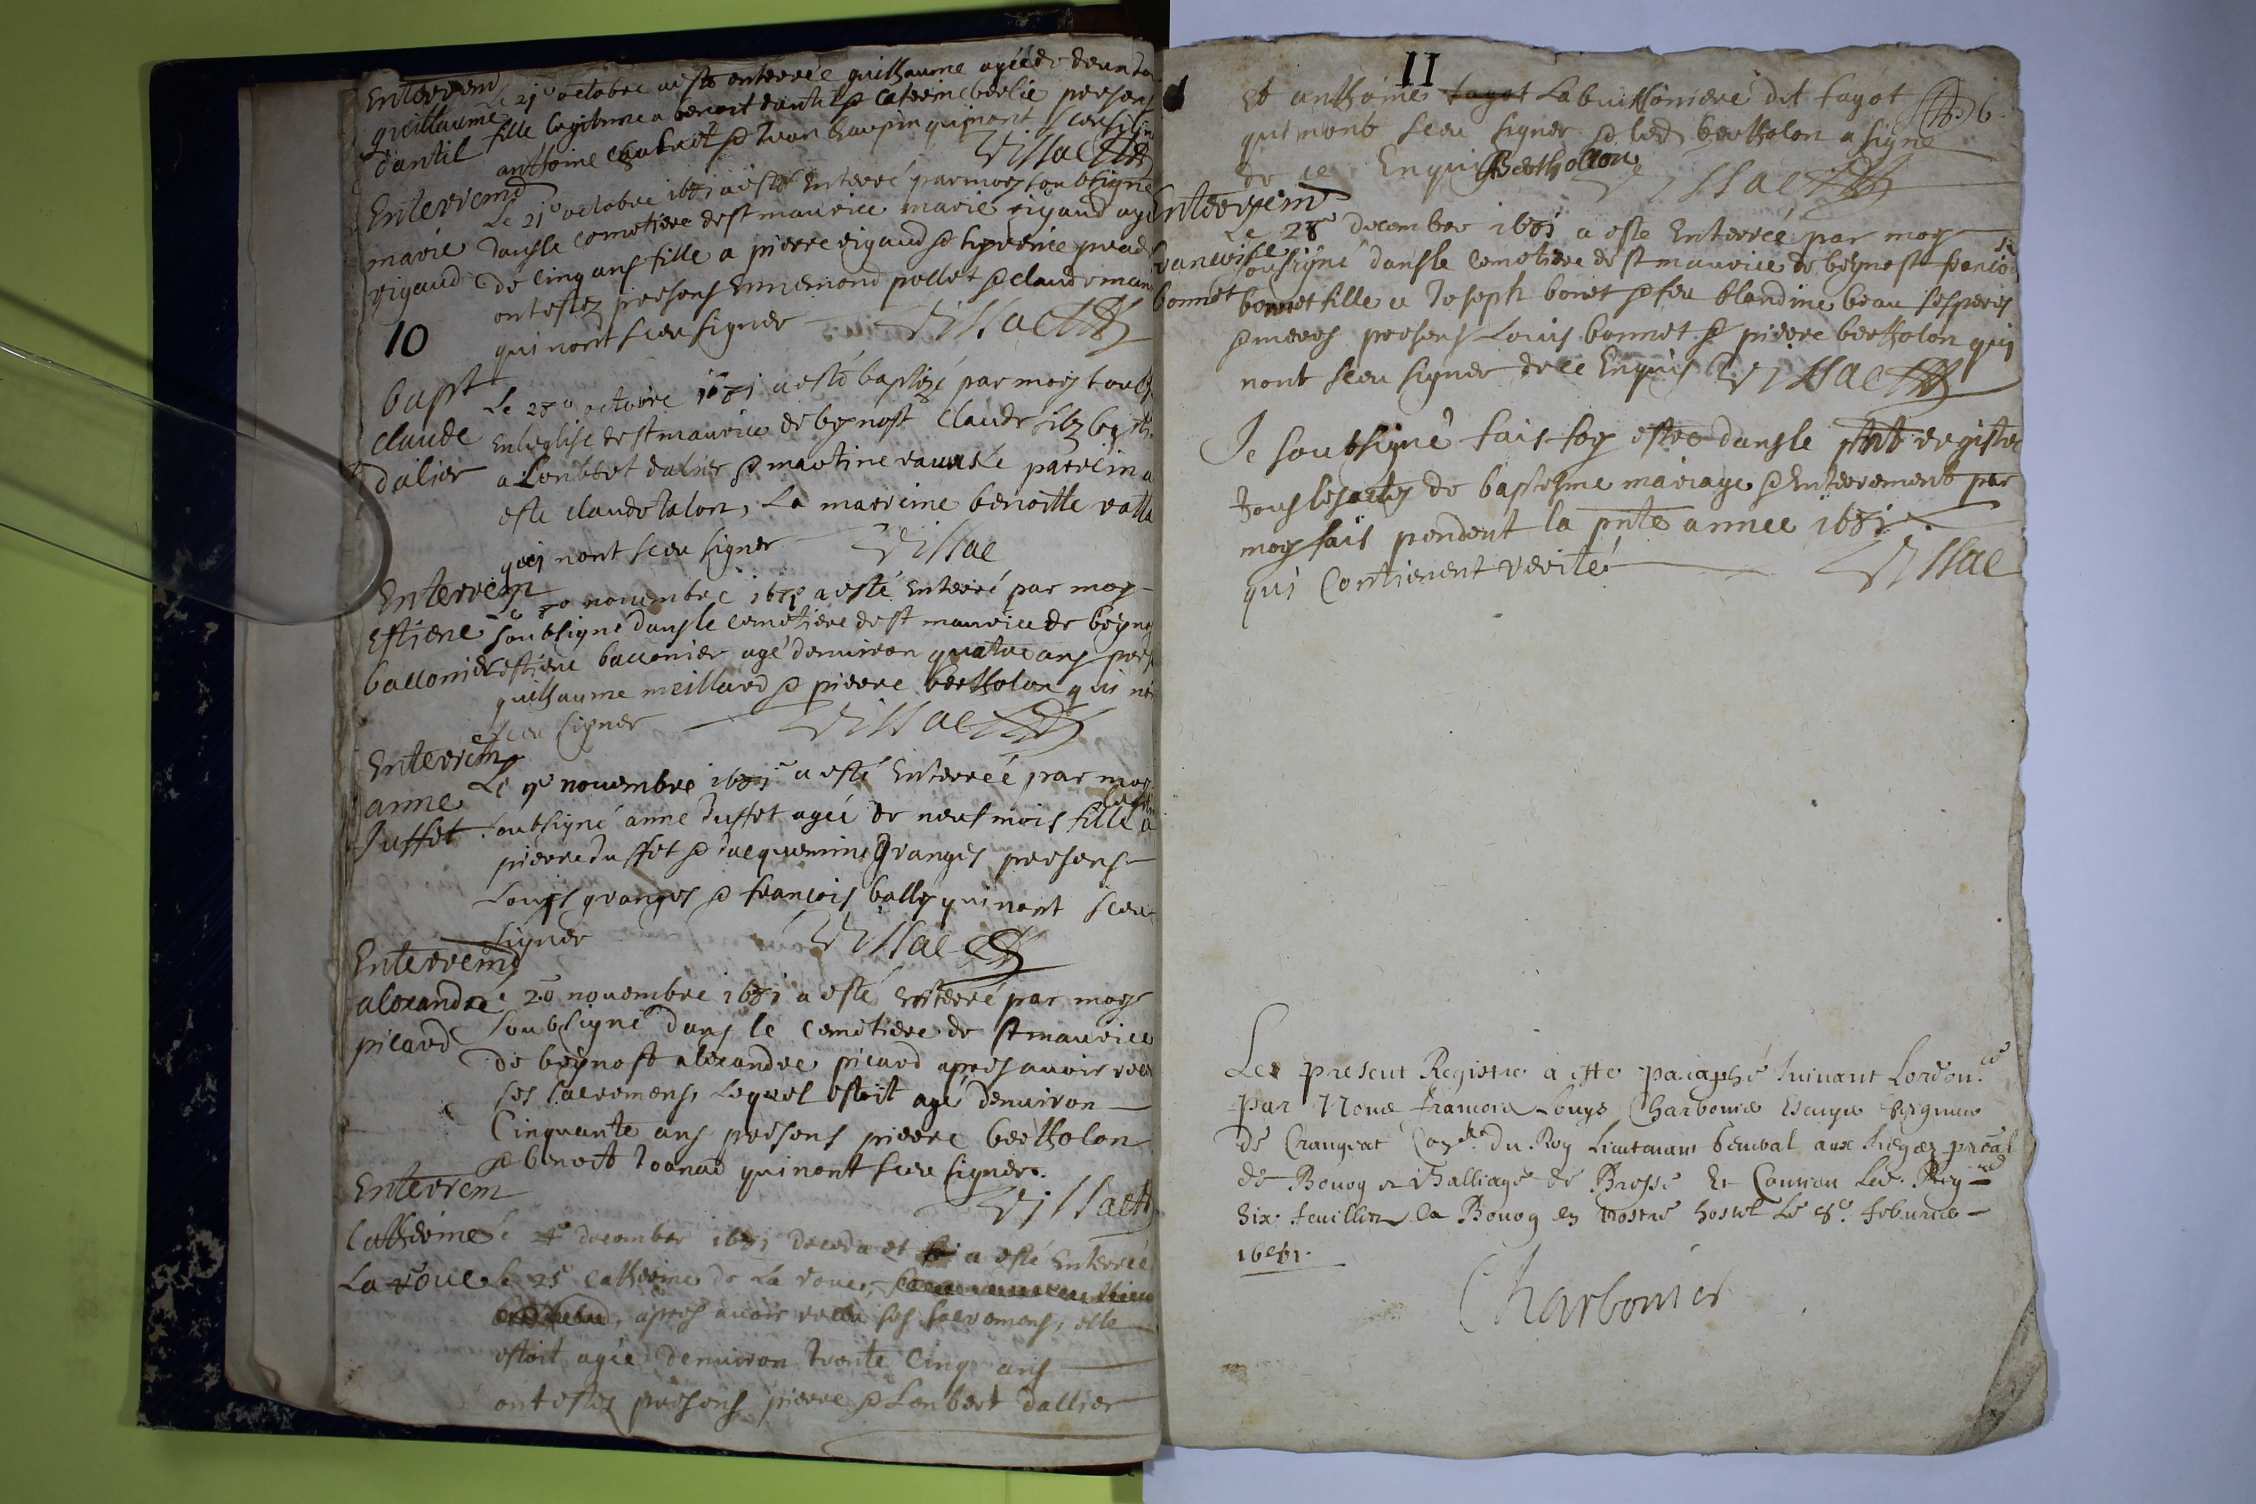 Enterrem
guillaume
dantil
Le 21e octobre a esté enterrée guillaume agéé de deux
fille legitime a benoit dantil & Caterine berlie presens
anthoine & Jean qui nont sceu signe
Vissac
Enterrem
marie
rigaud
Le 21e octobre 1681 a esté Enterré par moy soubsigné
dans le cemetiere de st maurice marie rigaud
de cinq ans fille a pierre rigaud &
ont estez presens Ennemond pollet & claude
qui nont sceu signer Vissac
10
bapt
claude
dalier
Le 28e octobre 1681 a esté baptizé par moy soubs
En leglise de st maurice de beynost Claude filz
a Lonbert dalier & martine parrein a
esté claude talon, La marreine benoitte
qui nont sceu signer Vissac
Enterrem
Estiene
bacconier
Le novembre 1681 a esté Enterré par moy
soubsigné dans le cemetiere de st maurice de beyno
estiene bacconier agé denviron quatre ans
guillaume meillard & pierre bertholon qui
sceu signer Vissac
Enterrem
anne
Juffet
Le novembre 1681 a esté Enterréé par moy
soubsigné anne Juffet agéé de neuf mois fille a
pierre Juffet & Jacquemine granges presens
Louys granges & francois bally qui nont sceu
signer Vissac
Enterrem
alexandre
picard
Le 20 novembre 1681 a esté enterré par moy
soubsigné dans le cemetiere de st maurice
de beynost alexandre picard apres avoir
ses sacremens, Lequel estoit agé denviron
Cinquante ans presens pierre bertholon
& benoit qui nont sceu signer.
Vissac
Enterrem
Catherine
La roue
Le decembre 1681 deceda et a esté Enterréé
le 25 catherine de La roue,
apres avoir receu ses sacremens, elle
estoit agéé denviron trente Cinq ans
ont estez presens pierre & Lonbert dallier
II
6
Et anthoine fagot Labuissoniere dit fagot
qui nont sceu signer & led bertholon a signé
de ce Enquis Berthollon Vissac
Enterrem
francoise
bonnet
Le 28e decembre 1681 a esté Enterréé par moy
soubsigné dans le cemetiere de st maurice de beynost francoise
bonnet fille a Joseph bonet & feu blandine beau ses peres
& meres presens Louis bonnet & pierre bertholon qui
nont sceu signer de ce Enquis Vissac
Je soubsigné fais foy estre dans le pnt registre
tous les actes de baptesme mariage & Enterrement par
moy fais pendent la pnte annee 1681
qui Contienent verité Vissac
Le present Registre a este paraphé suivant Lordon.ce
par Nous francois Louys Charbonier Escuyer seigneur
de Crangeat Con.er du Roy Lieutenant General aux sieges pñal
de Bourg et Balliage de Bresse Et Contien Led. Reg
Six feuilletz a Bourg en nostre hostel Le 8e. feburier
1681.
Charbonier